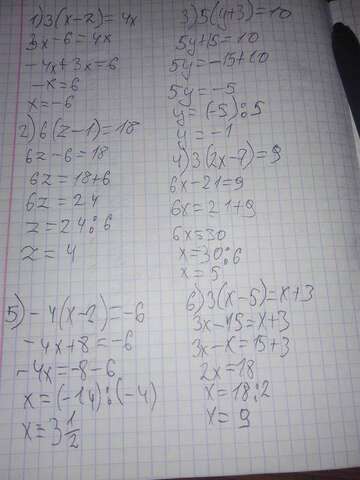 1) 3(x-2)=4x
3x-6=4x
-4x+3x=6
-x=6
x=-6
2) 6(z-1)=18
6z-6=18
6z=18+6
6z=24
z=24:6
z=4
3) 5(y+3)=10
5y+15=10
5y=-15+10
5y=-5
y=(-5):5
y=-1
4) 3(2x-7)=9
6x-21=9
6x=21+9
6x=30
x=30:6
x=5
5) -4(x-2)=-6
-4x+8=-6
-4x=-8-6
x=(-14):(-4)
x=3 1/2
6) 3(x-5)=x+3
3x-15=x+3
3x-x=15+3
2x=18
x=18:2
x=9